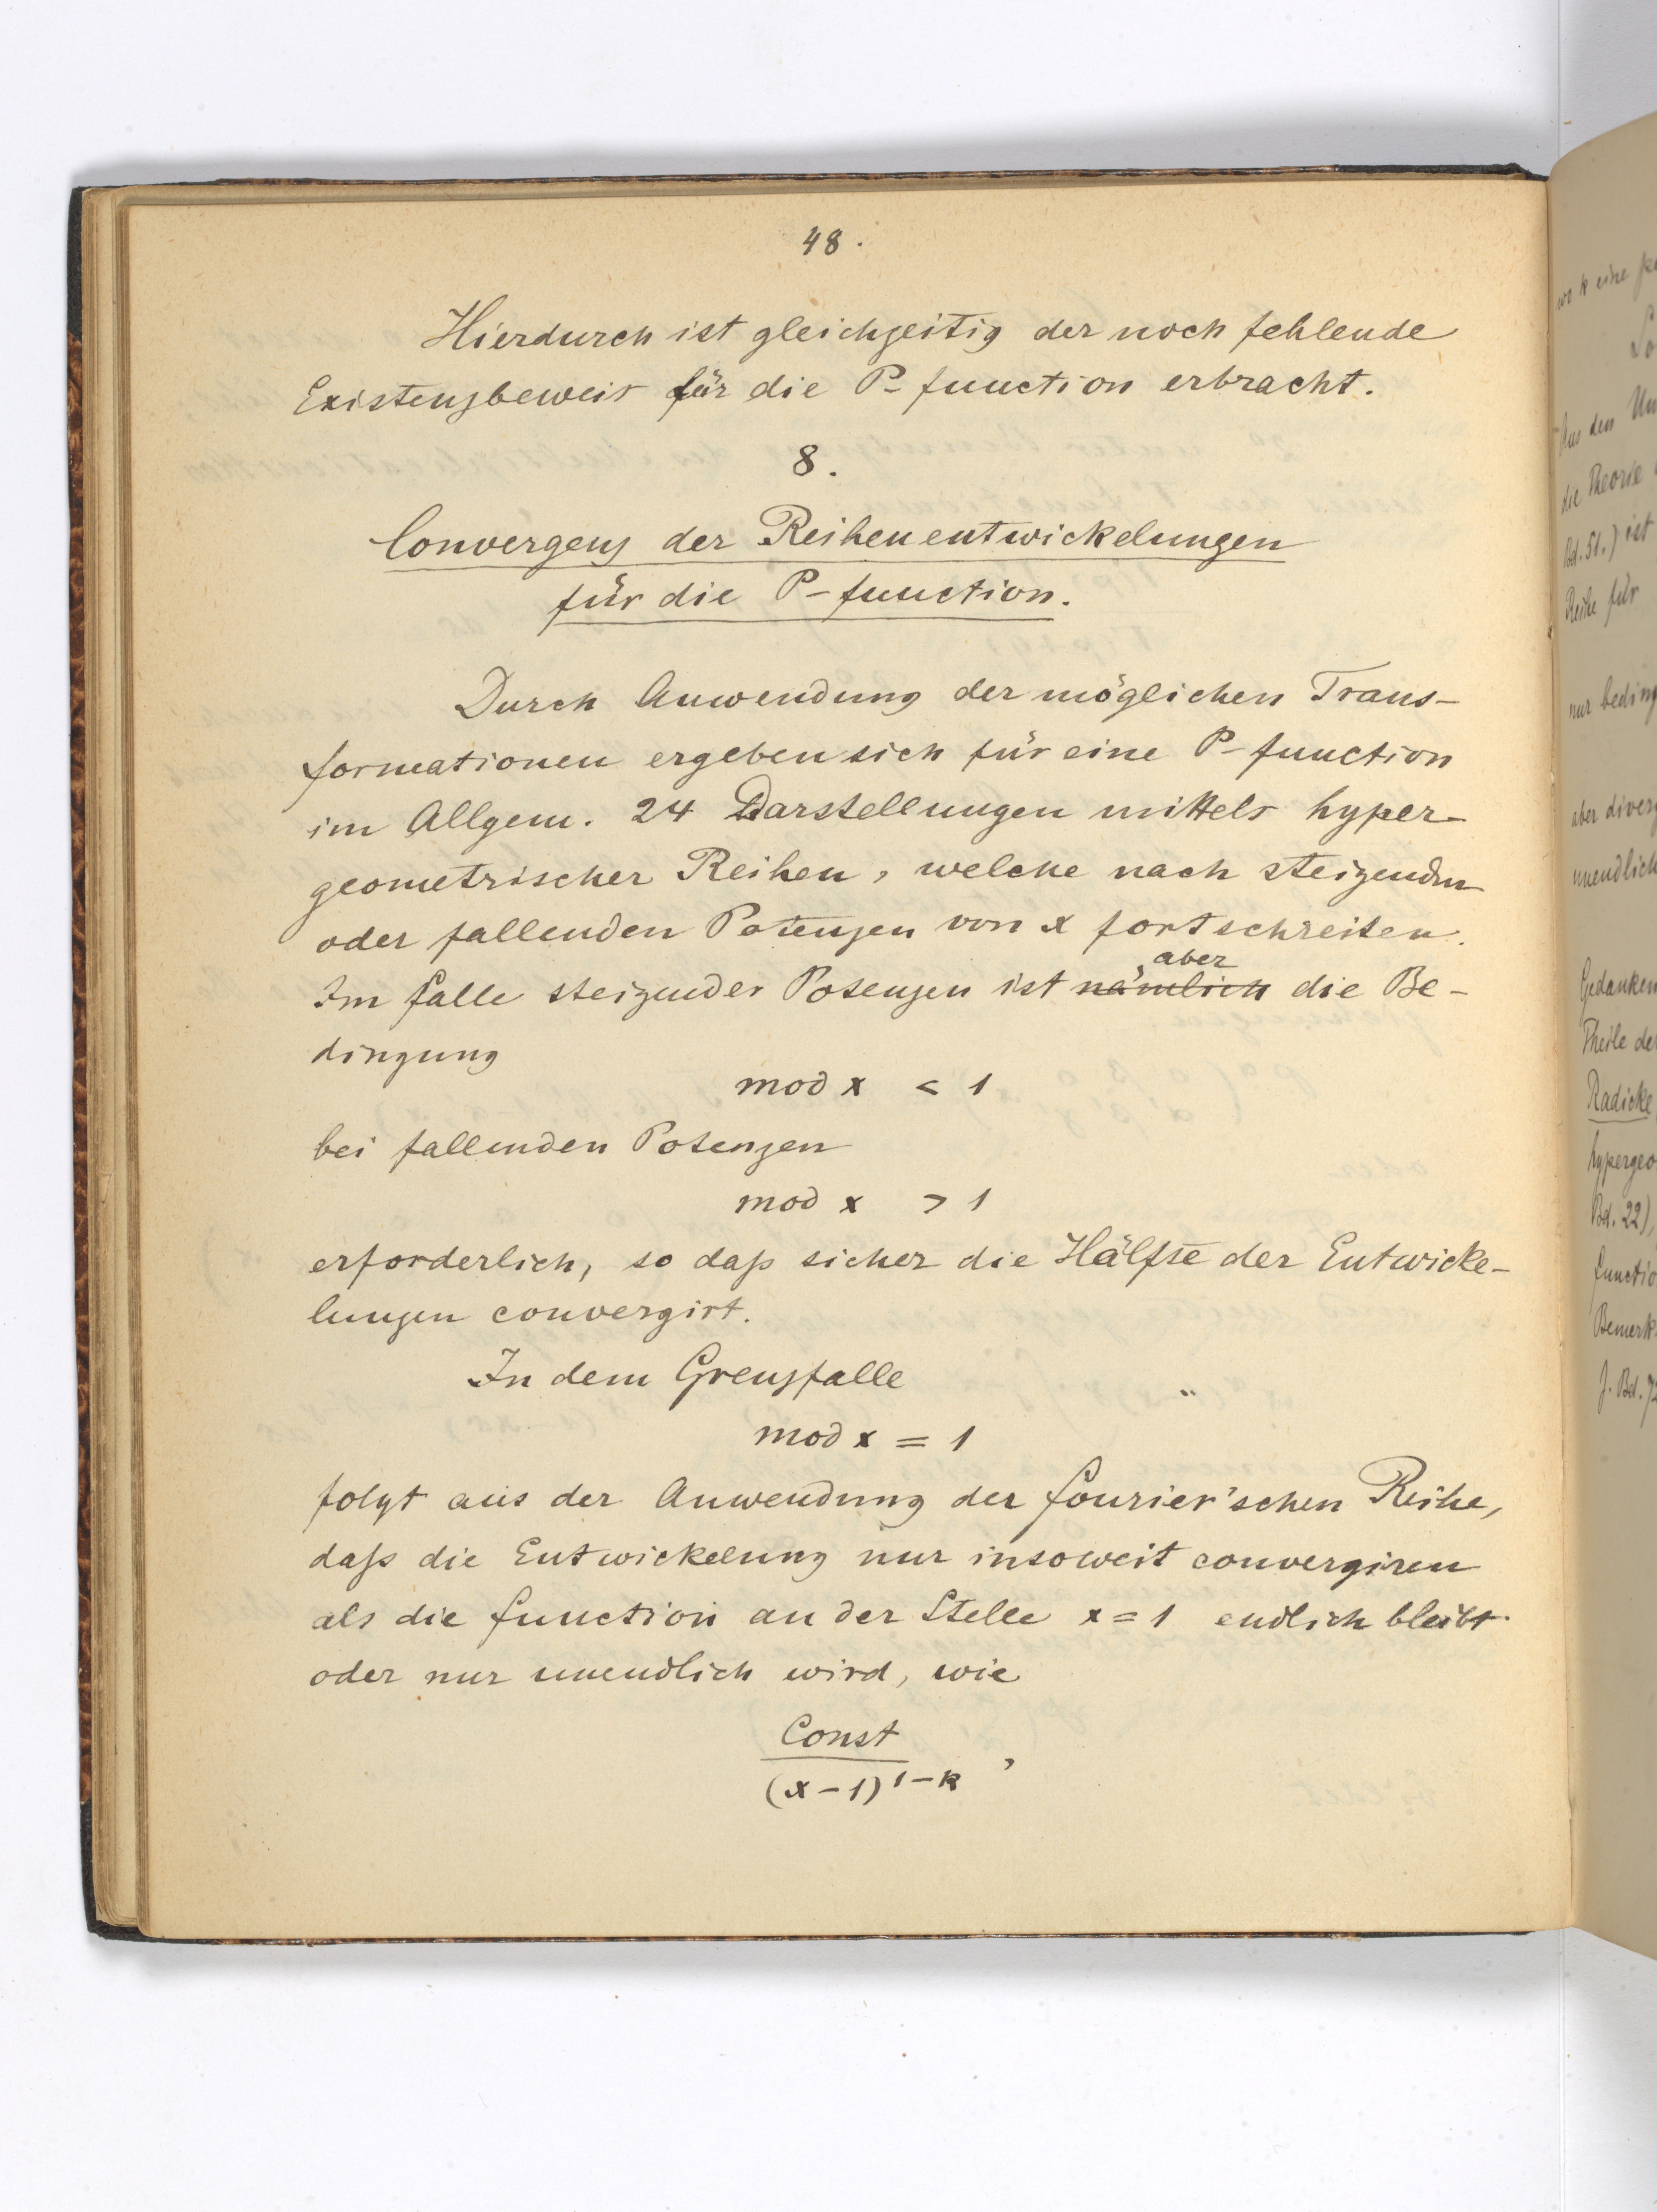 48.
Hierdurch ist gleichzeitig der noch fehlende
Existenzbeweis für die P-function erbracht.
8.
Convergenz der Reihenentwickelungen
für die P-function.
Durch Anwendung der möglichen Trans-
formationen ergeben sich für eine P-function
im Allgem. 24 Darstellungen mittels hyper-
geometrischer Reihen, welche nach steigenden
oder fallenden Potenzen von x fortschreiten.
aber
Im Falle steigender Potenzen ist nämlich die Be-
dingung
mod x < 1
bei fallenden Potenzen
mod x > 1
erforderlich, so daß sicher die Hälfte der Entwicke-
lungen convergirt.
In dem Grenzfalle
mod x = 1
folgt aus der Anwendung der Fourier'schen Reihe,
daß die Entwickelung nur insoweit convergiren
als die Function an der Stelle x = 1 endlich bleibt
oder nur unendlich wird, wie
Const
(x-1)^{1-k} ,
wo k eine
Aus den
die Theorie
Bd. 51.) ist
Reihe für
nur beding
aber diverg
unendlich
Gedanken
Theile der
Radicke
hypergeo
Bd. 22),
functio
Bemerk
J. Bd. 72